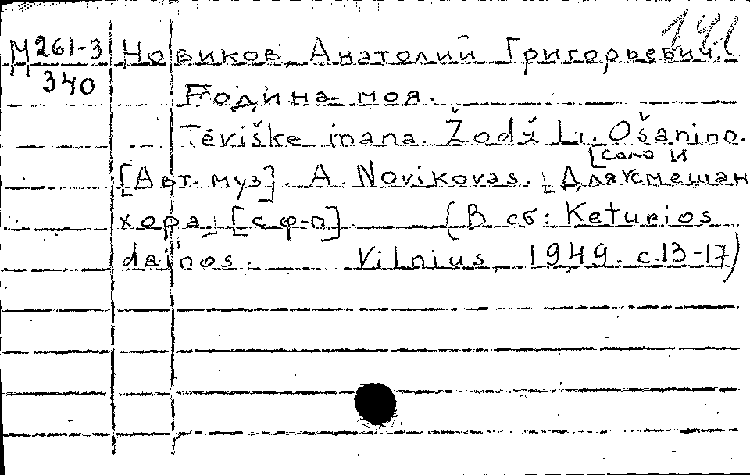 141
М261-3 Новиков, Анатолий Григорьевич.
340
Родина моя.
Tėviškė mana. Žodž L. Ošanino.
[соло и
[Авт. муз]. A. Novikovas. [Для смешан
хора] [с ф-п] (В сб: Keturios
dainos. Vilnius, 1949. с.13-17)